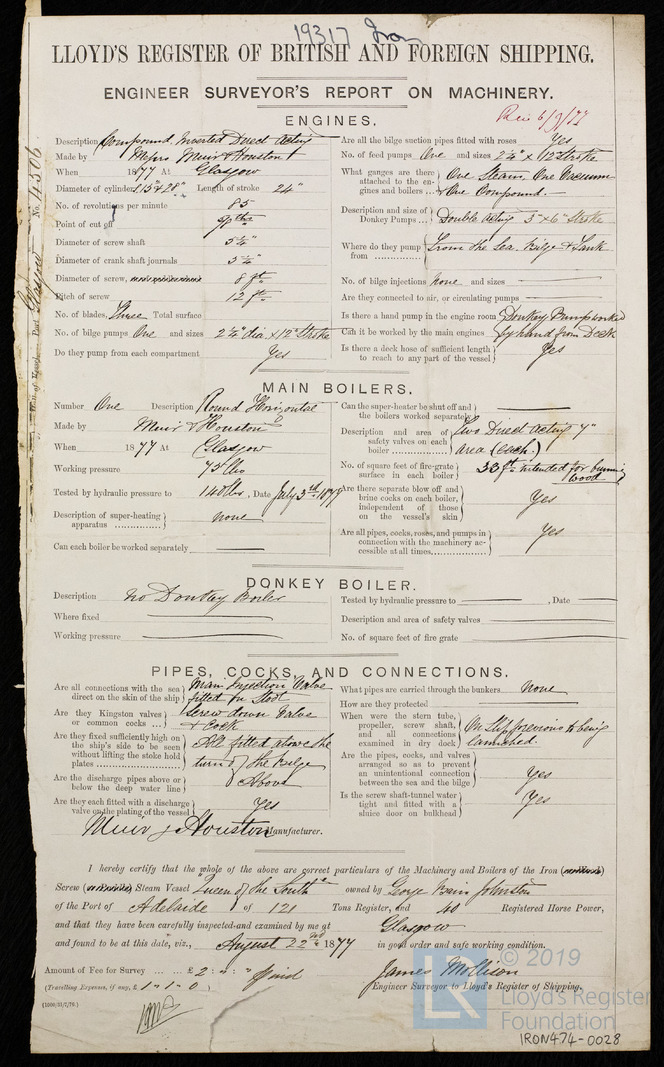 19317 Iron
LLOYD'S REGISTER OF BRITISH AND FOREIGN SHIPPING.
ENGINEER SURVEYOR'S REPORT ON MACHINERY.
6/9/77
No. 14506
Port Glasgow
ENGINES.
Description Compound Inverted Direct Acting
Made by Messrs Muir & Houston
When 1877 At Glasgow
Diameter of cylinders 15" & 28" Length of stroke 24"
No. of revolutions per minute 85
Point of cut off
Diameter of screw shaft 5¼"
Diameter of crank shaft journals 5¼"
Diameter of screw, 8 ft
Pitch of screw 12 ft
No. of blades, Three Total surface
No. of bilge pumps One and sizes 2¼" dia x 12" Stroke
Do they pump from each compartment Yes
Are all the bilge suction pipes fitted with roses Yes
No. of feed pumps One and sizes 2¼" x 12" Stroke
What gauges are there attached to the engines and boilers ... One Steam, One Vacuum & One Compound.
Description and size of Donkey Pumps ... Double acting 5" x 6" Stroke
Where do they pump from From the Sea, Bilge & Tank
No. of bilge injections none and sizes
Are they connected to air, or circulating pumps
Is there a hand pump in the engine room Donkey Pump worked
Can it be worked by the main engines by hand from Deck
Is there a deck hose of sufficient length to reach to any part of the vessel Yes
MAIN BOILERS.
Number One Description Round Horizontal
Made by Muir & Houston
When 1877 At Glasgow
Working pressure 75 lbs
Tested by hydraulic pressure to 140 lbs, Date July 3rd 1877
Description of super-heating apparatus none
Can each boiler be worked separately
Can the super-heater be shut off and the boilers worked separately
Description and area of safety valves on each boiler Two Direct acting 7" area (each)
No. of square feet of fire-grate surface in each boiler 33 ft intended for burning wood
Are there separate blow off and brine cocks on each boiler, independent of those on the vessel's skin Yes
Are all pipes, cocks, roses, and pumps in connection with the machinery accessible at all times Yes
DONKEY BOILER.
Description no Donkey Boiler
Where fixed
Working pressure
Tested by hydraulic pressure to , Date
Description and area of safety valves
No. of square feet of fire grate
PIPES, COCKS, AND CONNECTIONS.
Are all connections with the sea direct on the skin of the ship Main Injection Valve fitted on
Are they Kingston valves or common cocks ... Screw down Valve & Cock
Are they fixed sufficiently high on the ship's side to be seen without lifting the stoke hold plates All fitted above the turn of the Bilge
Are the discharge pipes above or below the deep water line Above
Are they each fitted with a discharge valve on the plating of the vessel Yes
What pipes are carried through the bunkers none
How are they protected
When were the stern tube, propeller, screw shaft, and all connections examined in dry dock On Slip previous to being launched.
Are the pipes, cocks, and valves arranged so as to prevent an unintentional connection between the sea and the bilge Yes
Is the screw shaft-tunnel water tight and fitted with a sluice door on bulkhead Yes
Muir & Houston Manufacturer.
I hereby certify that the whole of the above are correct particulars of the Machinery and Boilers of the Iron
Screw Steam Vessel "Queen of the South" owned by George Bain Johnston
of the Port of Adelaide of 121 Tons Register, and 40 Registered Horse Power,
and that they have been carefully inspected and examined by me at Glasgow
and found to be at this date, viz., August 22nd 1877 in good order and safe working condition.
Amount of Fee for Survey ... ... £ 2 : " : " paid
James Mollison
(Travelling Expenses, if any, £ 1 " 1 " 0)
Engineer Surveyor to Lloyd's Register of Shipping.
© 2019
LR
Lloyd's Register
Foundation
IRON474-0028